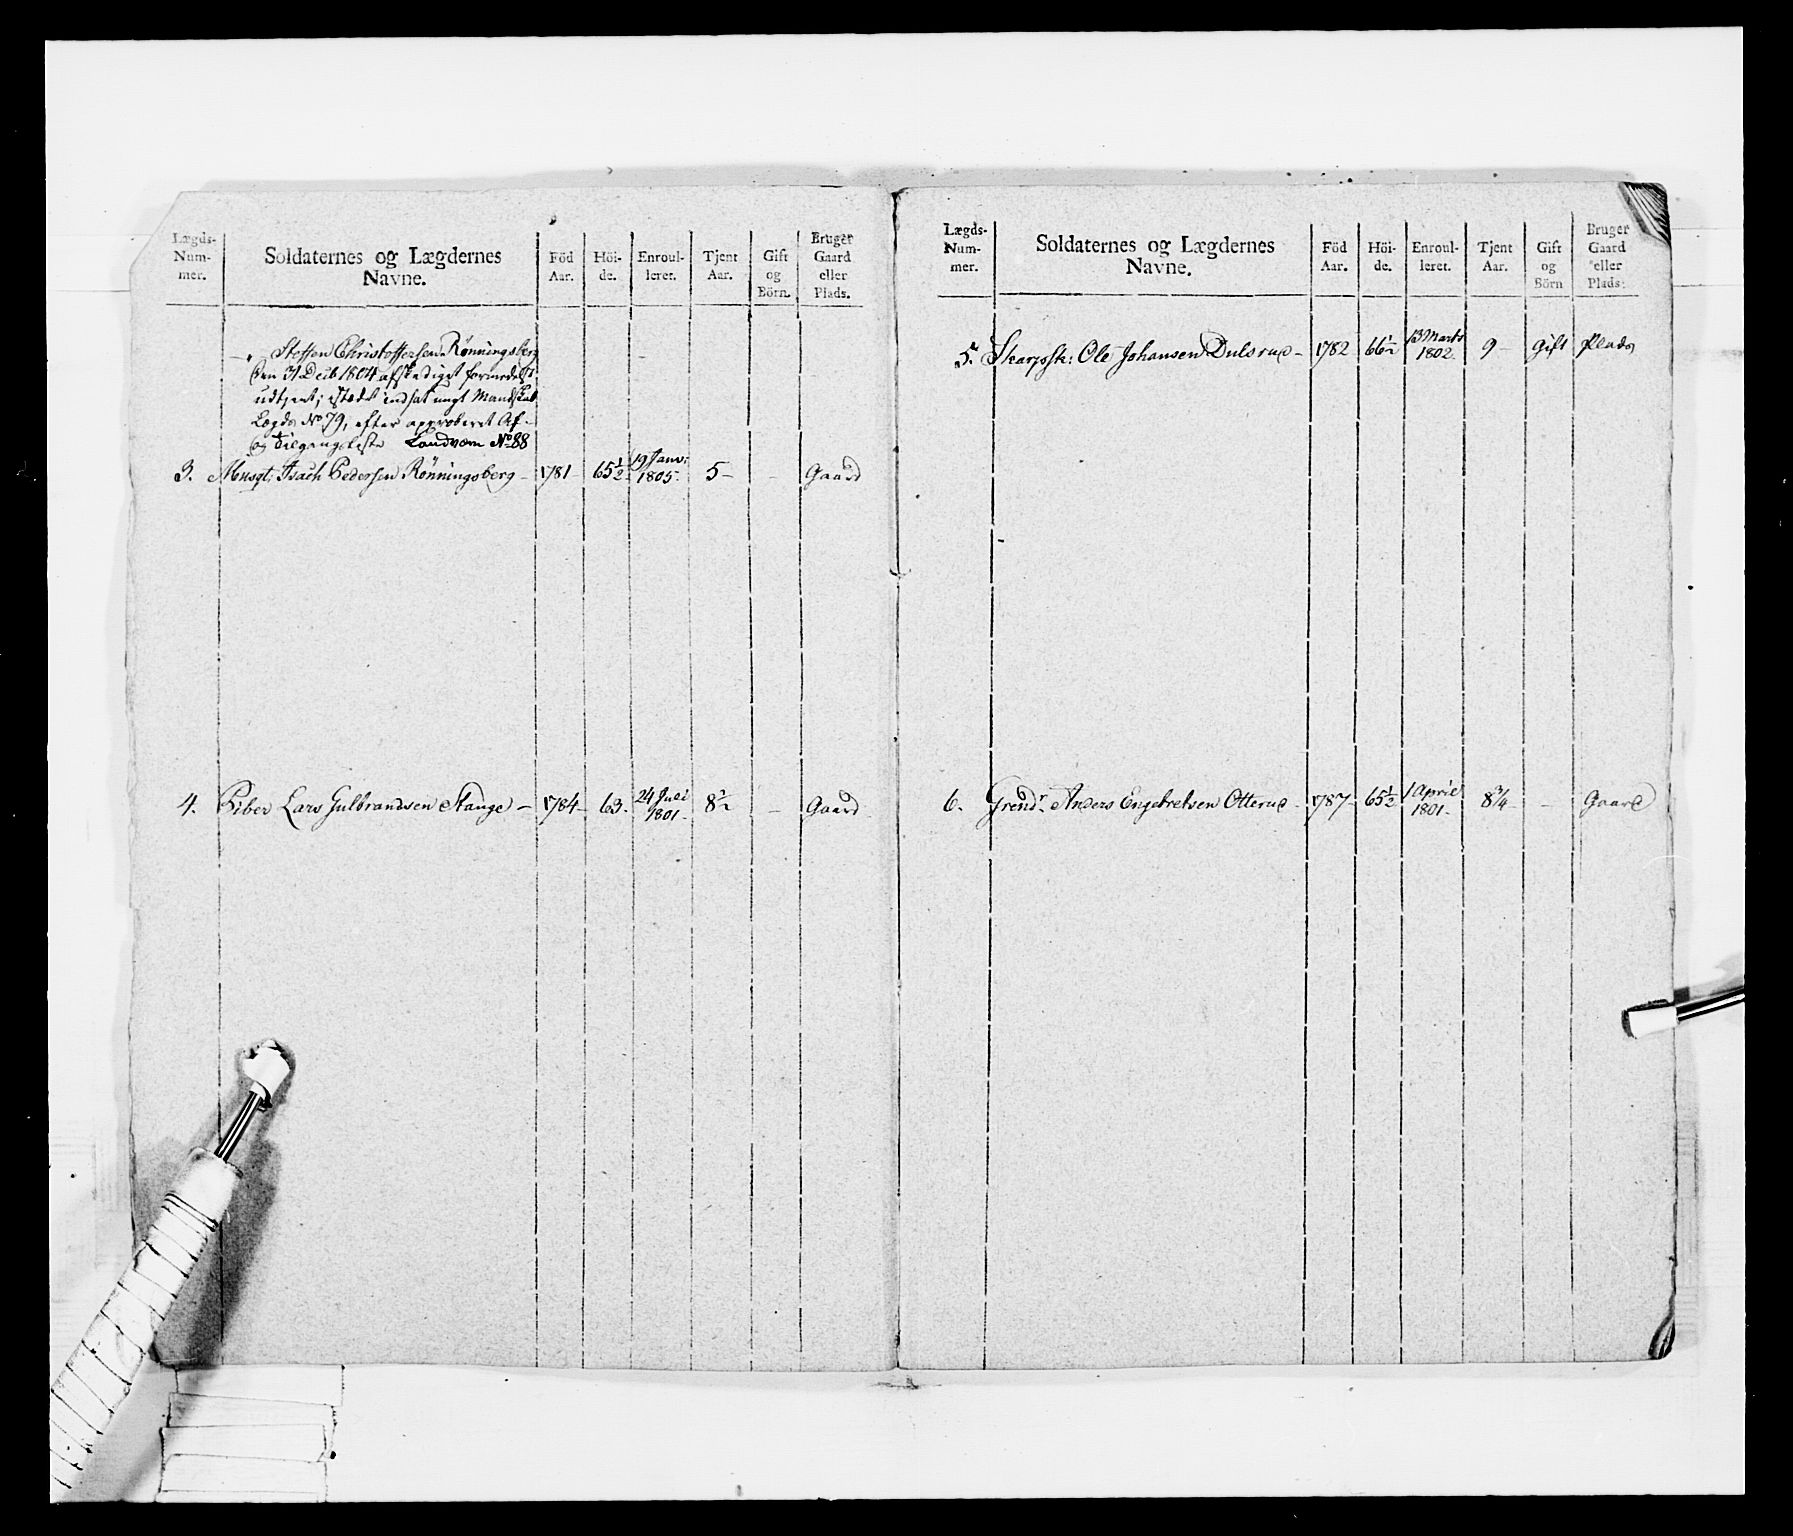 Lægds-Num-mer. Soldaternes og Lægdernes Navne. Föd Aar. Höi-de. Enroul-leret. Tjent Aar. Gift og Börn. Bruger Gaard eller Plads.
–„ Steffen Christoffersen Rønningsberg
den 31 Decb 1804 afskediget formedelst
udtjent; istædet indsat ungt Mandskab
Lægds No 79, efter approberet Af-
og Tilgangsliste Landværn No 88
3. Musqt: Isach Pedersen Rönningsberg – 1781 65½ 19 Janv: 1805. 5 – – Gaard
4. Piber Lars Gulbrandsen Stange – 1784 – 63. 24 Juli 1801. 8½ – Gaard
Lægds-Num-mer. Soldaternes og Lægdernes Navne. Föd Aar. Höi-de. Enroul-leret. Tjent Aar. Gift og Börn Bruger Gaard eller Plads.
5. Skarpsk: Ole Johansen Dulsrud – 1782 66½ 13 Marts 1802. 9 – Gift Plads
6. Grendr. Anders Engebretsen Otterud – 1787 – 65½ 1 April 1801. 8¾ – Gaard